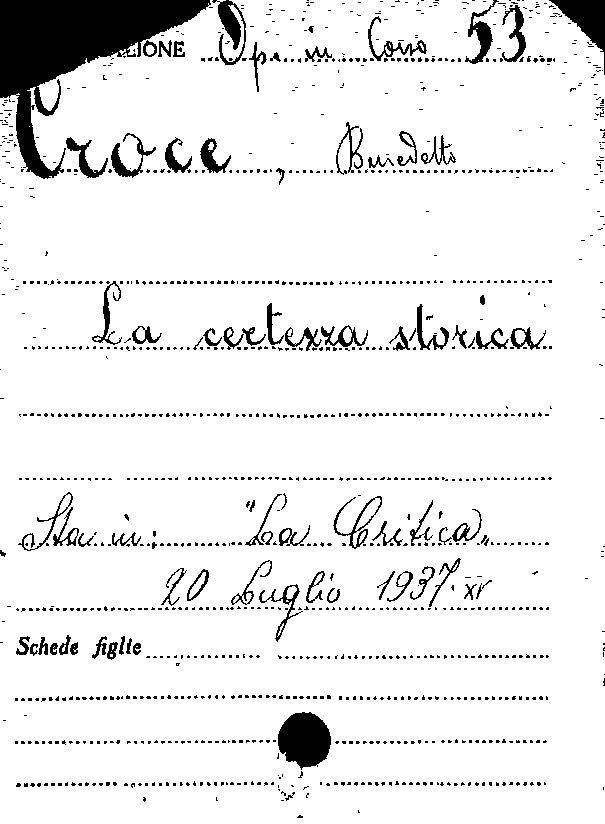 LIONE Op. in Corso 53
Croce, Benedetto
La certezza storica
Sta in: "La Critica„
20 Luglio 1937-XV
Schede figlie